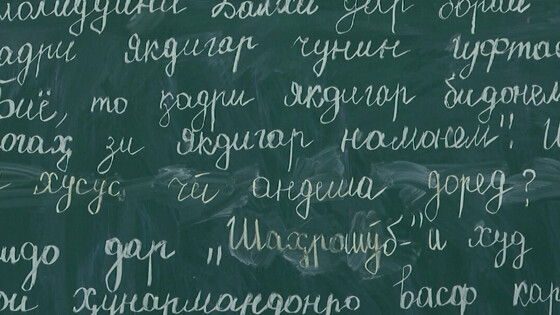 молиддини Балхи дар бораи
адри якдигар чунин гуфта
Биё, то қадри якдигар бидонем
огаҳ зи якдигар намонем". И
хусус чӣ андеша доред?
идо дар „Шаҳрошӯб-"и худ
ои ҳунармандонро васф кар